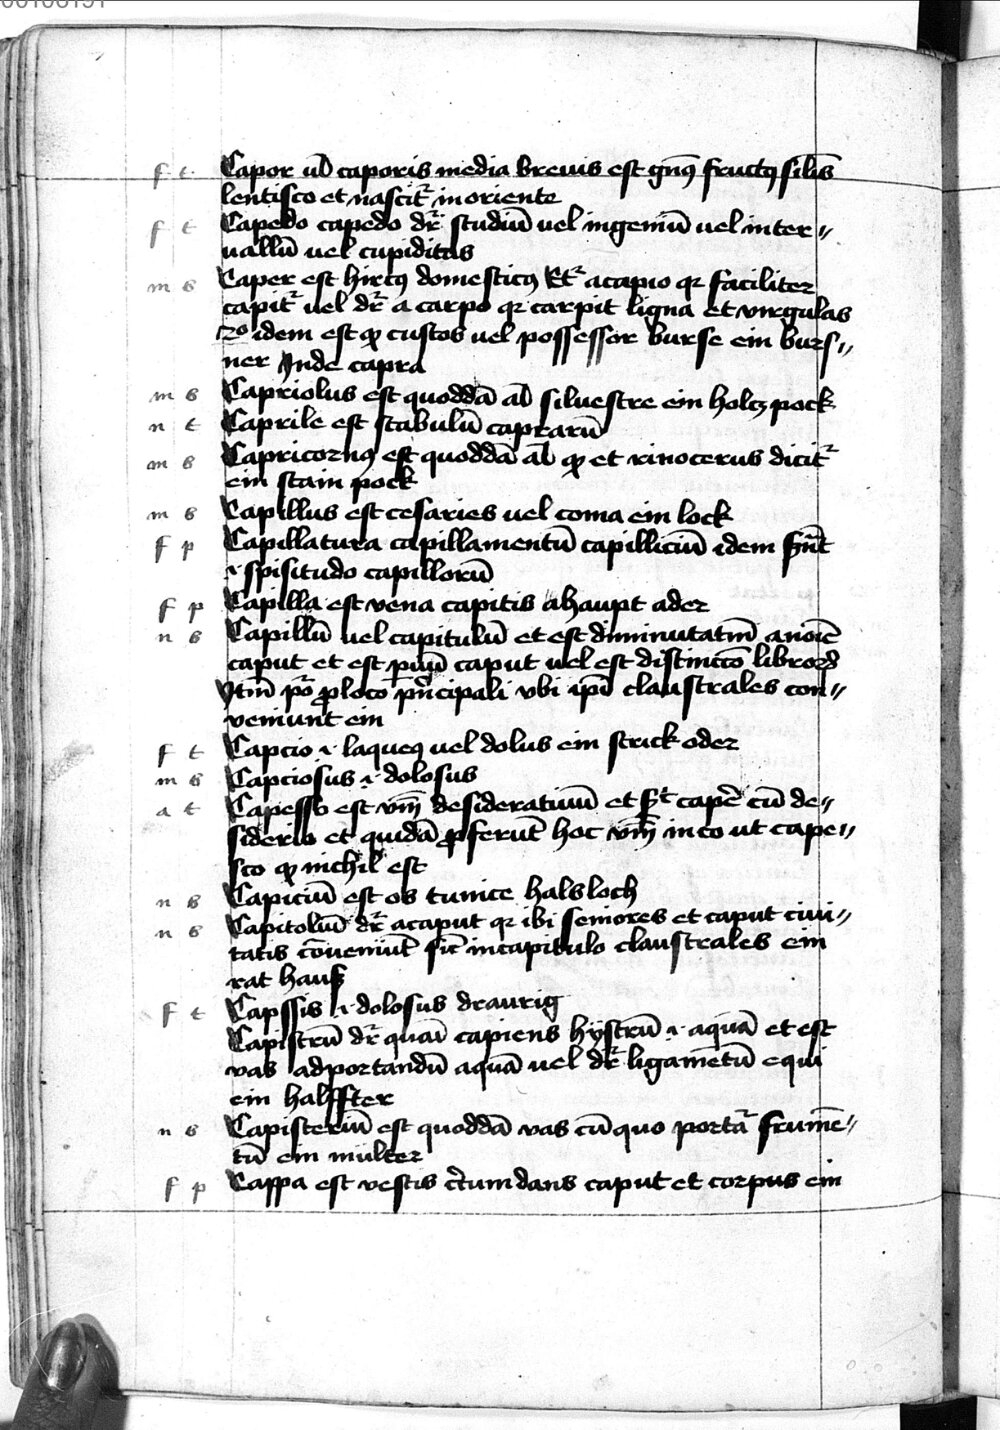 f t Capor ul̄ caporis media brevis est gn̄ꝰ fructꝰ silīs
lentisco et nascit᷑ in oriente
f t Capedo capedo dr̄ studiū vel ingeniū vel inter〃
vallū vel cupiditas
m s Caper est hircꝰ domesticꝰ Et᷑ a capio qr faciliter
capit᷑ vel dr̄ a carpo qr carpit ligna et virgulas
idem est qꝫ custos vel possessor burse ein burs〃
ner Inde capra
m s Capriolus est quoddā al̄ silvestre ein holcz pock
n t Caprile est stabulū caprarū
m s Capricornꝰ est quoddā al̄ qꝫ et rinocerus dicit᷑
ein stain pock
m s Capillus est cesaries vel coma ein lock
f p Capillatura capillamentū capilliciū idem sūt
.i. spisitudo capillorū
f p Capilla est vena capitis a haupt ader
n s Capillū vel capitulū et est diminutatim̄ a noīe
caput et est pūū caput vel est distinccō libroꝝ
Itm̄ pō ꝓ loco pn̄cipali vbi ipī claustrales con〃
veniunt ein
f t Capcio .i. laqueꝰ vel dolus ein strick oder
m s Capciosus .i. dolosus
a t Capesso est vm̄ desideratiuū et sꝫt capē cū de〃
siderio et quidā ꝓferūt hoc vm̄ in co ut cape〃
sco qꝫ nichil est
n s Capiciū est os tunice halsloch
n s Capitoliū dr̄ a caput qr ibi seniores et caput ciui〃
tatis cōveniūt sic̄ in capitulo claustrales ein
rat hauß
f t Capssis .i. dolosus draurig
Capistrū dr̄ quasi capiens hystrū .i. aquā et est
vas ad portandū aquā vel dr̄ ligamētū equi
ein halffter
n s Capisteriū est quoddā vas cū quo portāt᷑ frumē〃
tū ein multer
f p Cappa est vestis cr̄cumdans caput et corpus ein